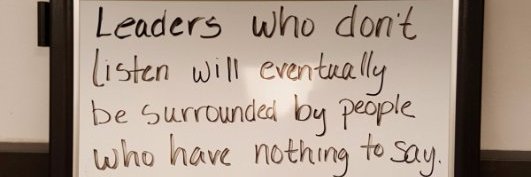 Leaders who don't
listen will eventually
be surrounded by people
who have nothing to say.